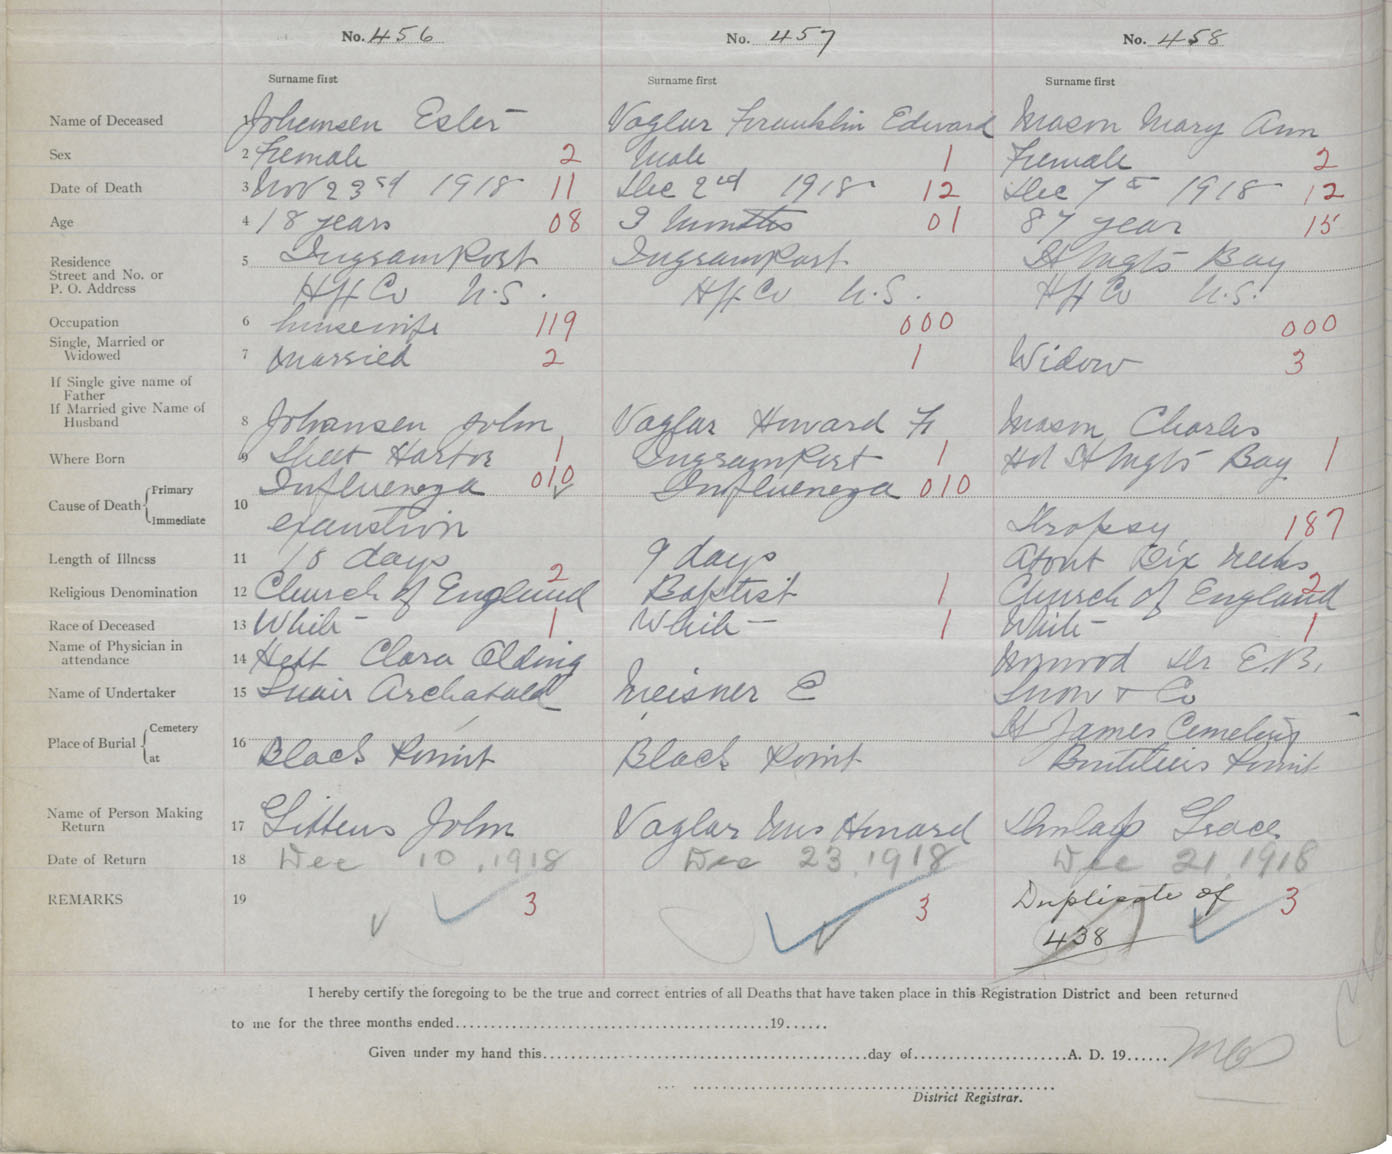 No. 456 No. 457 No. 458
Surname first Surname first Surname first
Name of Deceased 1 Johensen Ester Voglar Franklin Edward Mason Mary Ann
Sex 2 Female 2 Male 1 Female 2
Date of Death 3 Nov 23rd 1918 11 Dec 2nd 1918 12 Dec 7th 1918 12
Age 4 18 years 08 9 Months 01 87 year 15
Residence 5 Ingramport Ingramport St Mgts Bay
Street and No. or
P. O. Address Hfx Co N.S. Hfx Co N.S. Hfx Co N.S.
Occupation 6 housewife 119 000 000
Single, Married or
Widowed 7 Married 2 1 Widow 3
If Single give name of
Father
If Married give Name of
Husband 8 Johansen John Voglar Howard Fr Mason Charles
Where Born 9 Sheet Harbor 1 Ingramport 1 Hd St Mgts Bay 1
Cause of Death Primary Influenza 010 Influenza 010
10
Immediate exaustion Dropsy 187
Length of Illness 11 18 days 9 days About Six weeks
Religious Denomination 12 Church of England 2 Baptist 1 Church of England 2
Race of Deceased 13 White 1 White 1 White 1
Name of Physician in
attendance 14 Clara Olding Dr E.B.
Name of Undertaker 15 Archabald Meisner E Snow & Co
Place of Burial Cemetery 16 St James Cemetery
at Black Point Black Point Boutiliers Point
Name of Person Making
Return 17 Gibbens John Voglar Mrs Howard Dunlap Grace
Date of Return 18 Dec 10, 1918 Dec 23, 1918 Dec 21, 1918
REMARKS 19 3 3 Duplicate of 3
438
I hereby certify the foregoing to be the true and correct entries of all Deaths that have taken place in this Registration District and been returned
to me for the three months ended 19
Given under my hand this day of A. D. 19
District Registrar.